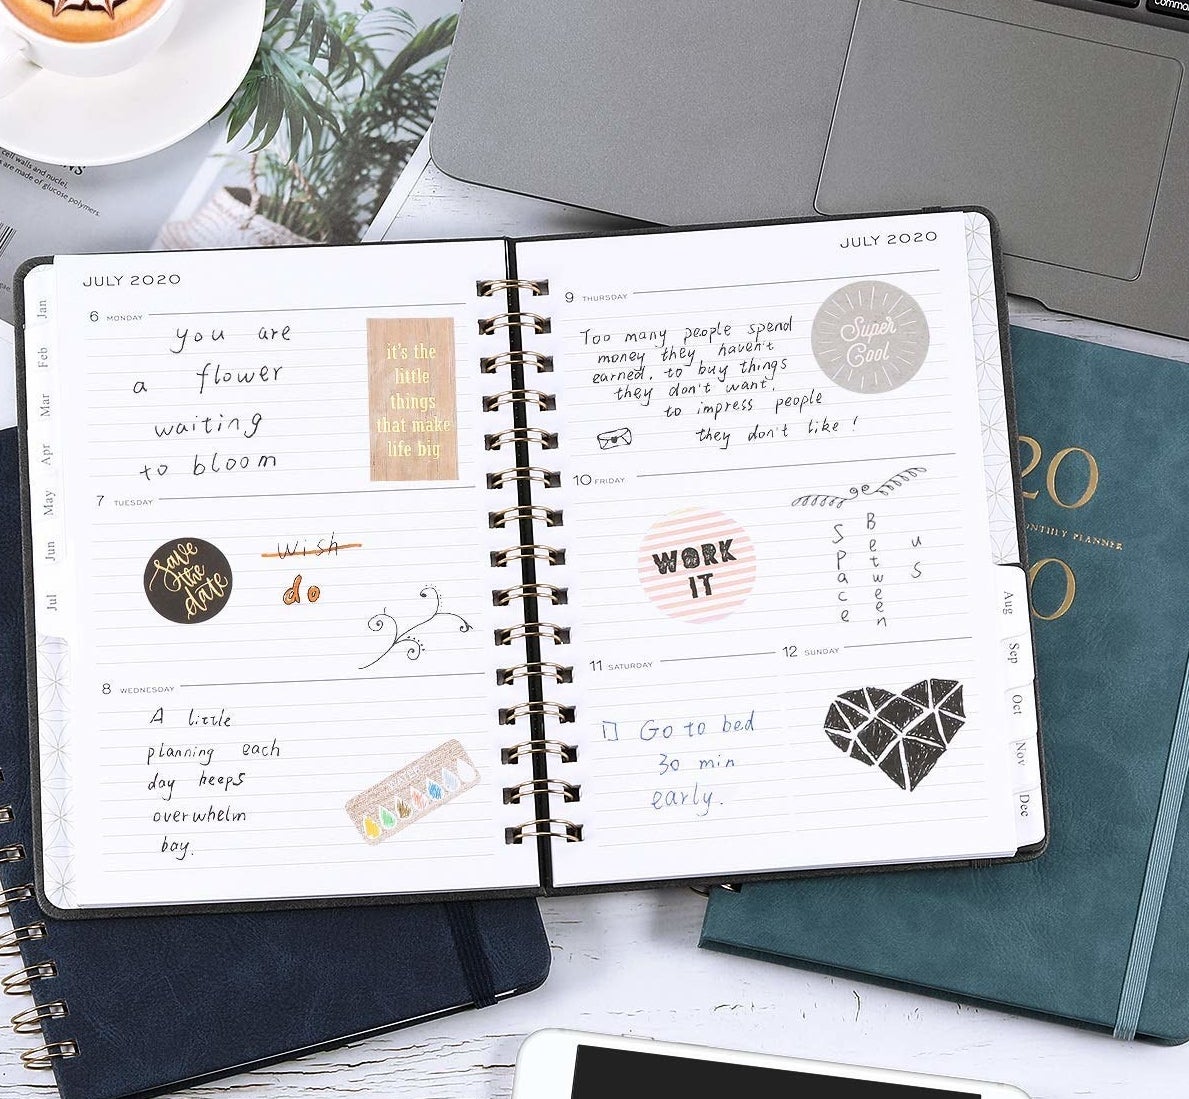 JULY 2020
6 MONDAY
you are
a flower
waiting
to bloom
it's the
little
things
that make
life big
7 TUESDAY
save
the
date
wish
do
8 WEDNESDAY
A little
planning each
day keeps
overwhelm
bay.
JULY 2020
9 THURSDAY
Too many people spend
money they haven't
earned, to buy things
they don't want,
to impress people
they don't like!
Super
Cool
10 FRIDAY
WORK
IT
Space
Between
us
11 SATURDAY
Go to bed
30 min
early.
12 SUNDAY
Jan
Feb
Mar
Apr
May
Jun
Jul
Aug
Sep
Oct
Nov
Dec
20
ONTHLY PLANNER
0
cell walls and nuclei.
are made of glucose polymers.